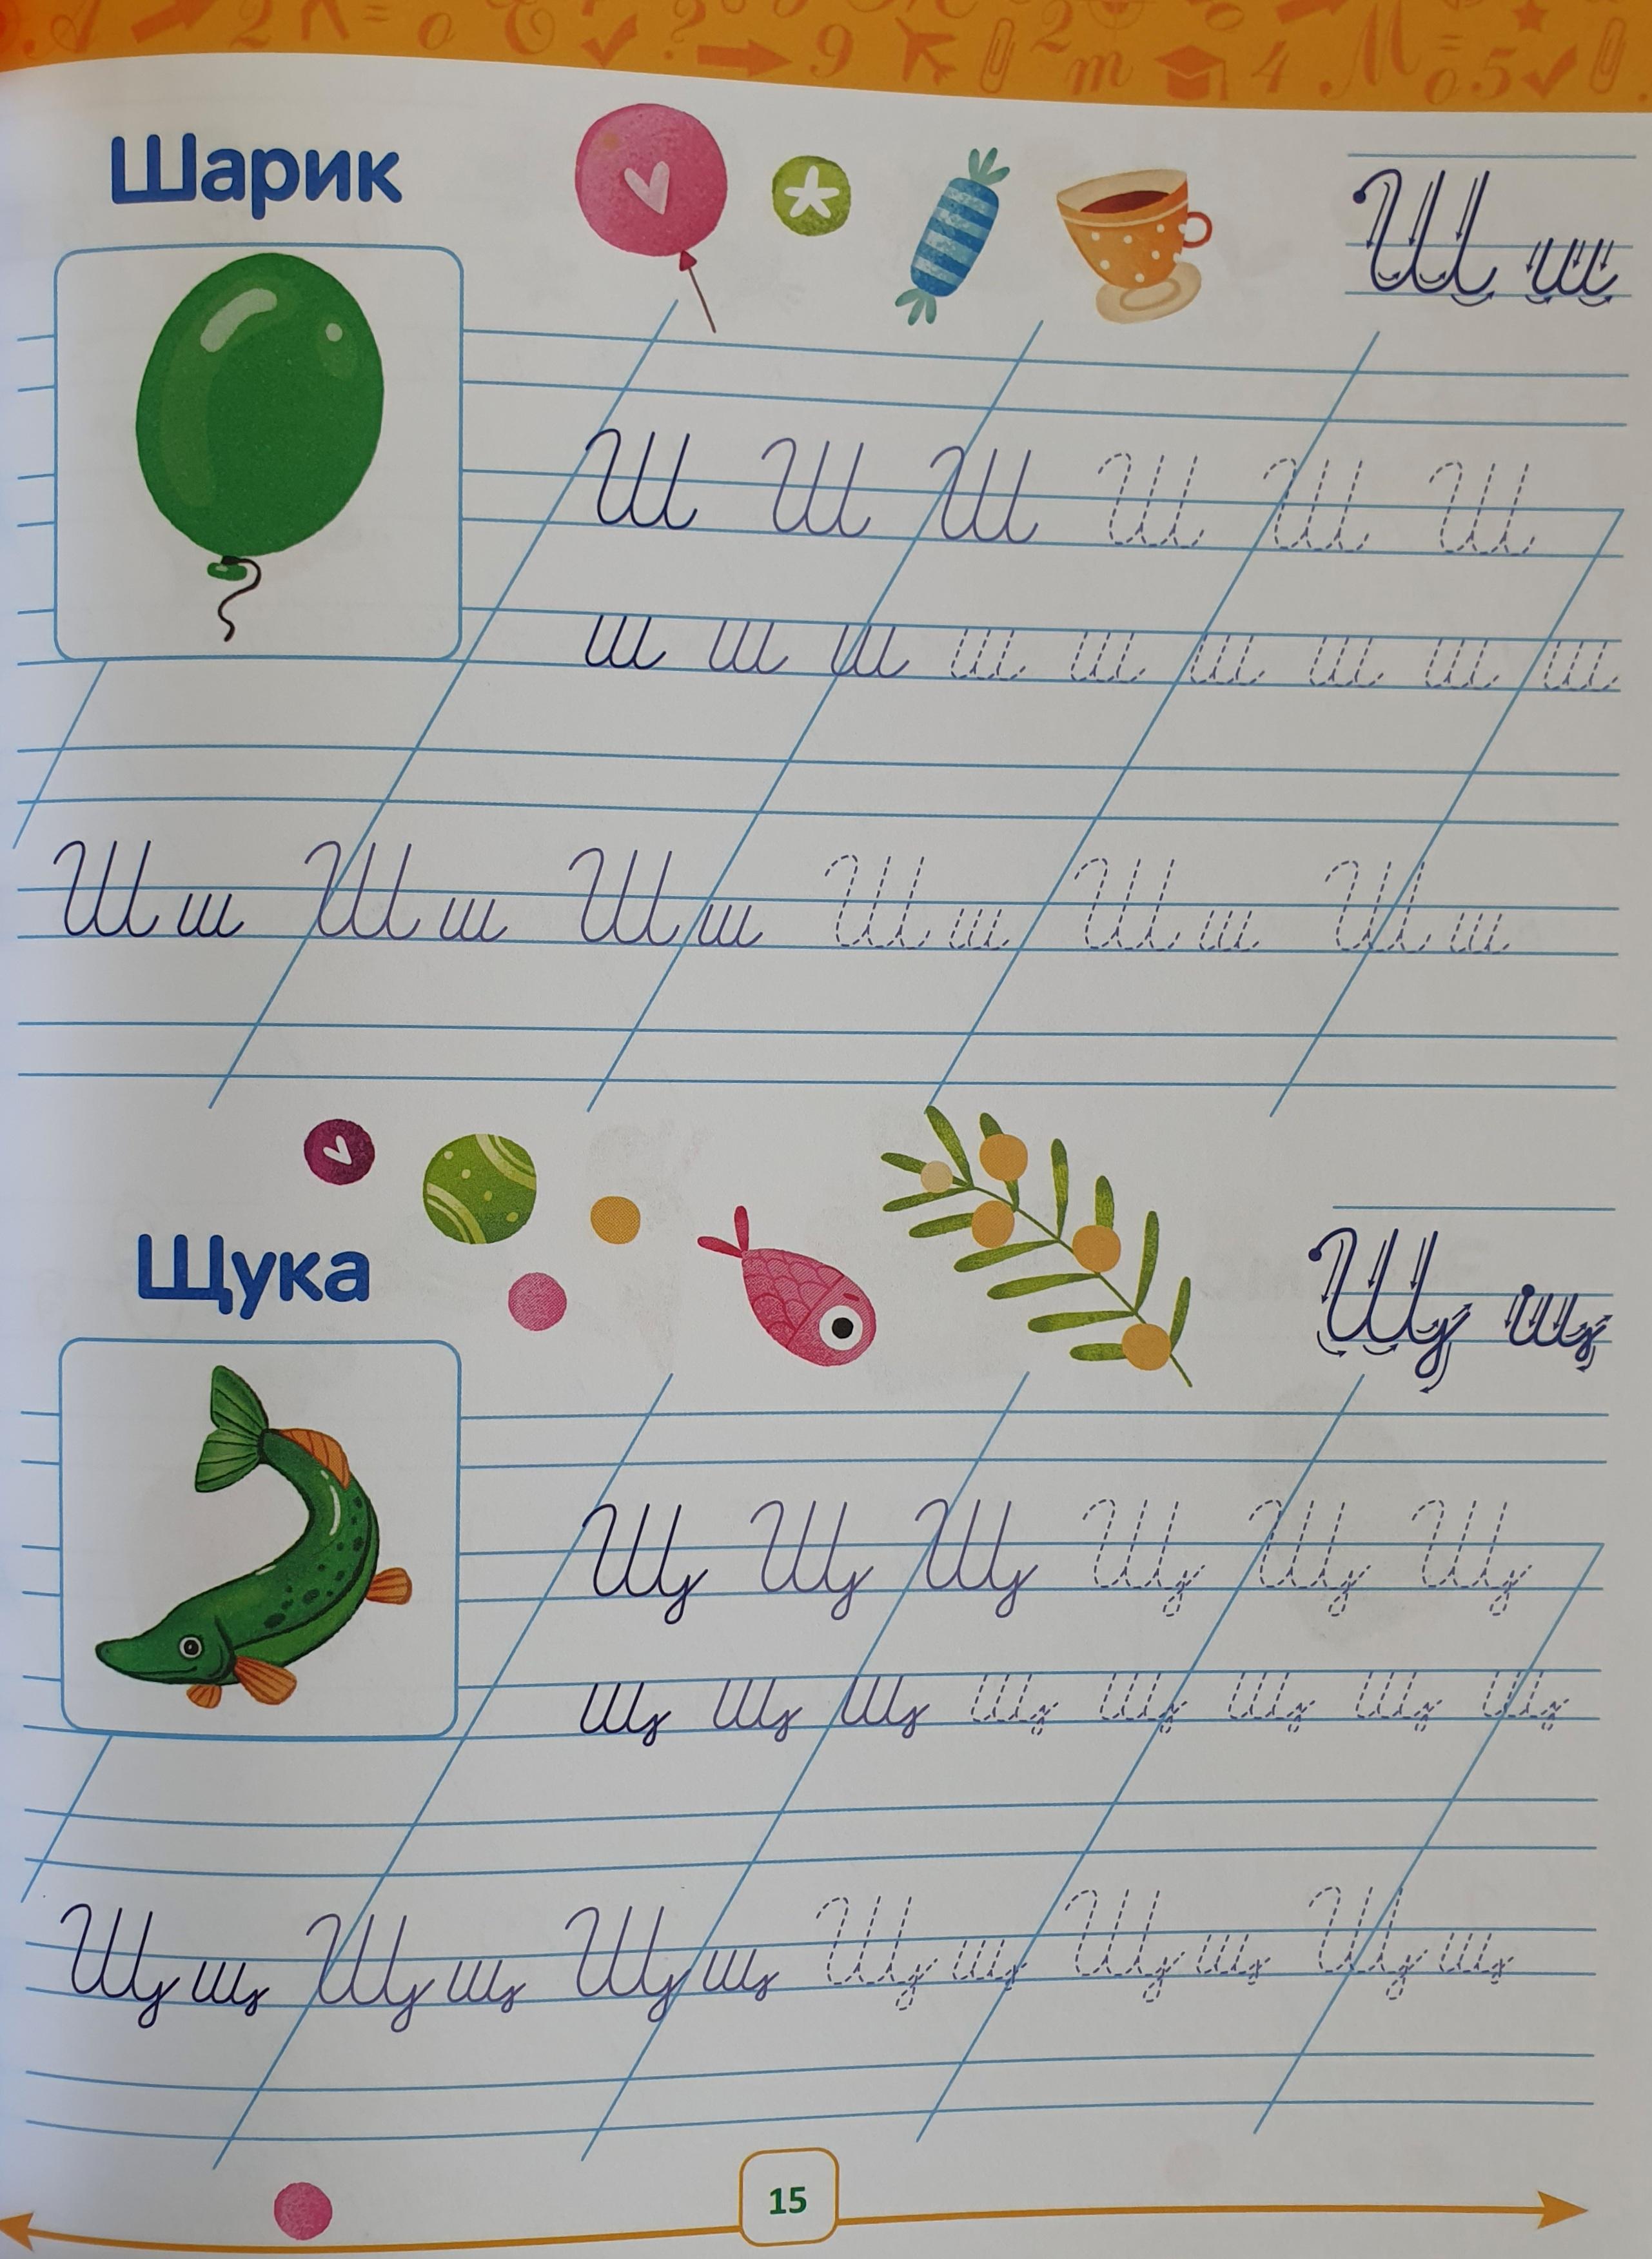 А 2 = о Е ? 9 2 m 4 М = о 5
Шарик
Ш ш
Ш Ш Ш Ш Ш Ш
ш ш ш ш ш ш ш ш ш
Ш ш Ш ш Ш ш Ш ш Ш ш Ш ш
Щука
Щ щ
Щ Щ Щ Щ Щ Щ
щ щ щ щ щ щ щ щ
Щ щ Щ щ Щ щ Щ щ Щ щ Щ щ
15